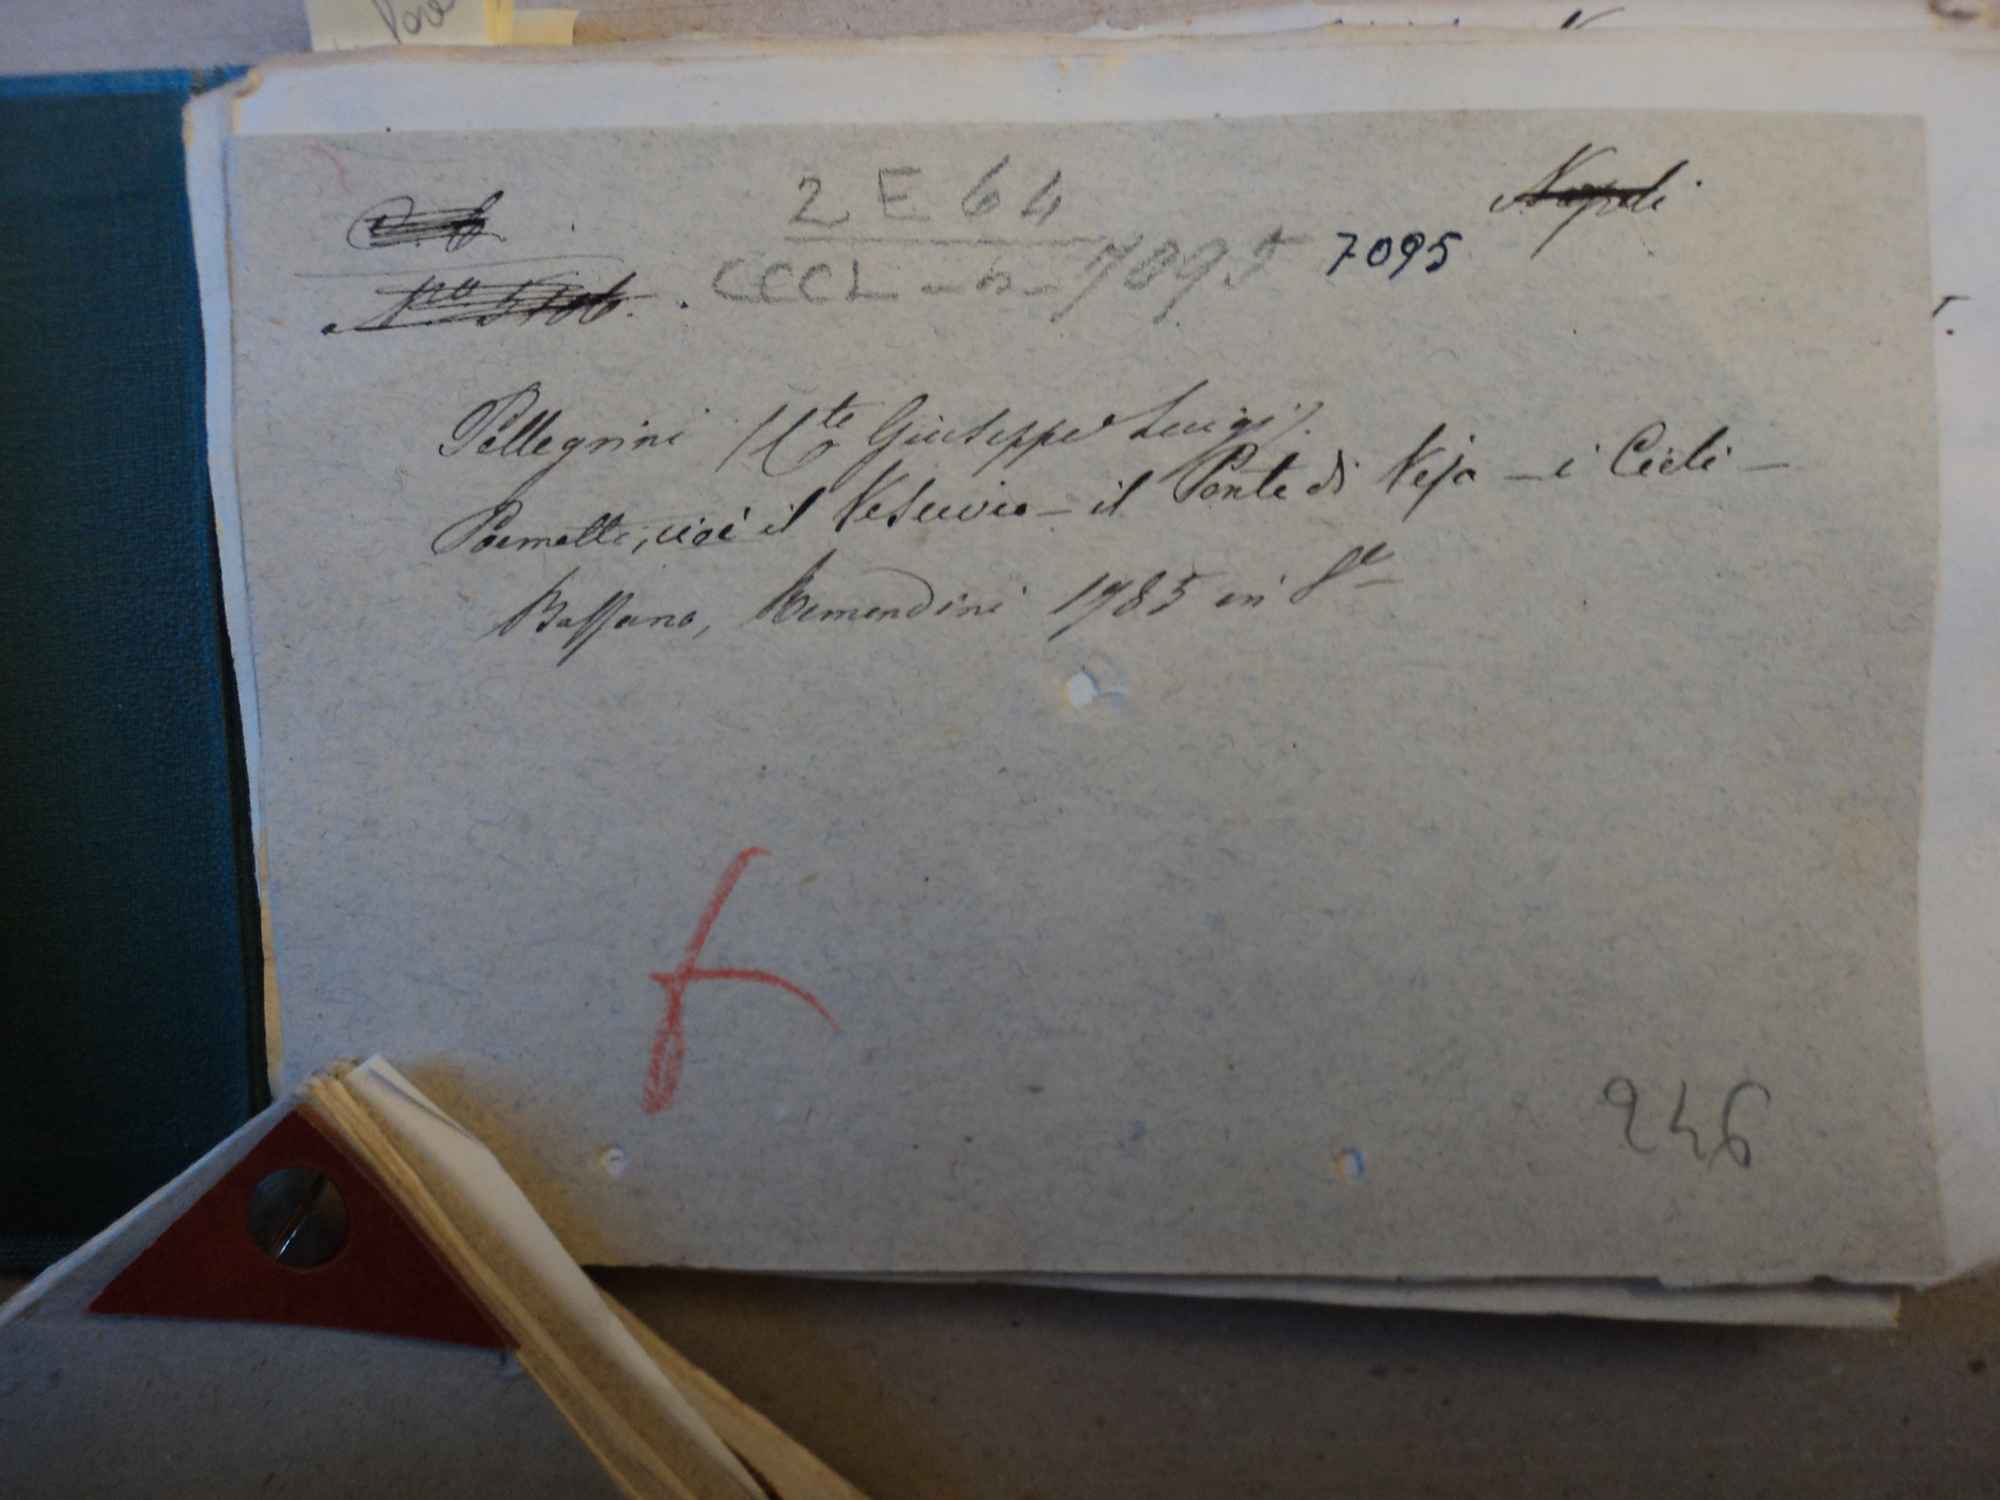 2 E 64
Napoli
CCCL - 6 - 7095 7095
No 5106.
Pellegrini (Cte Giuseppe Luigi).
Poemetti, cioè il Vesuvio — il Ponte di Veja — i Cieli —
Bassano, Remondini 1785 in 8o
246